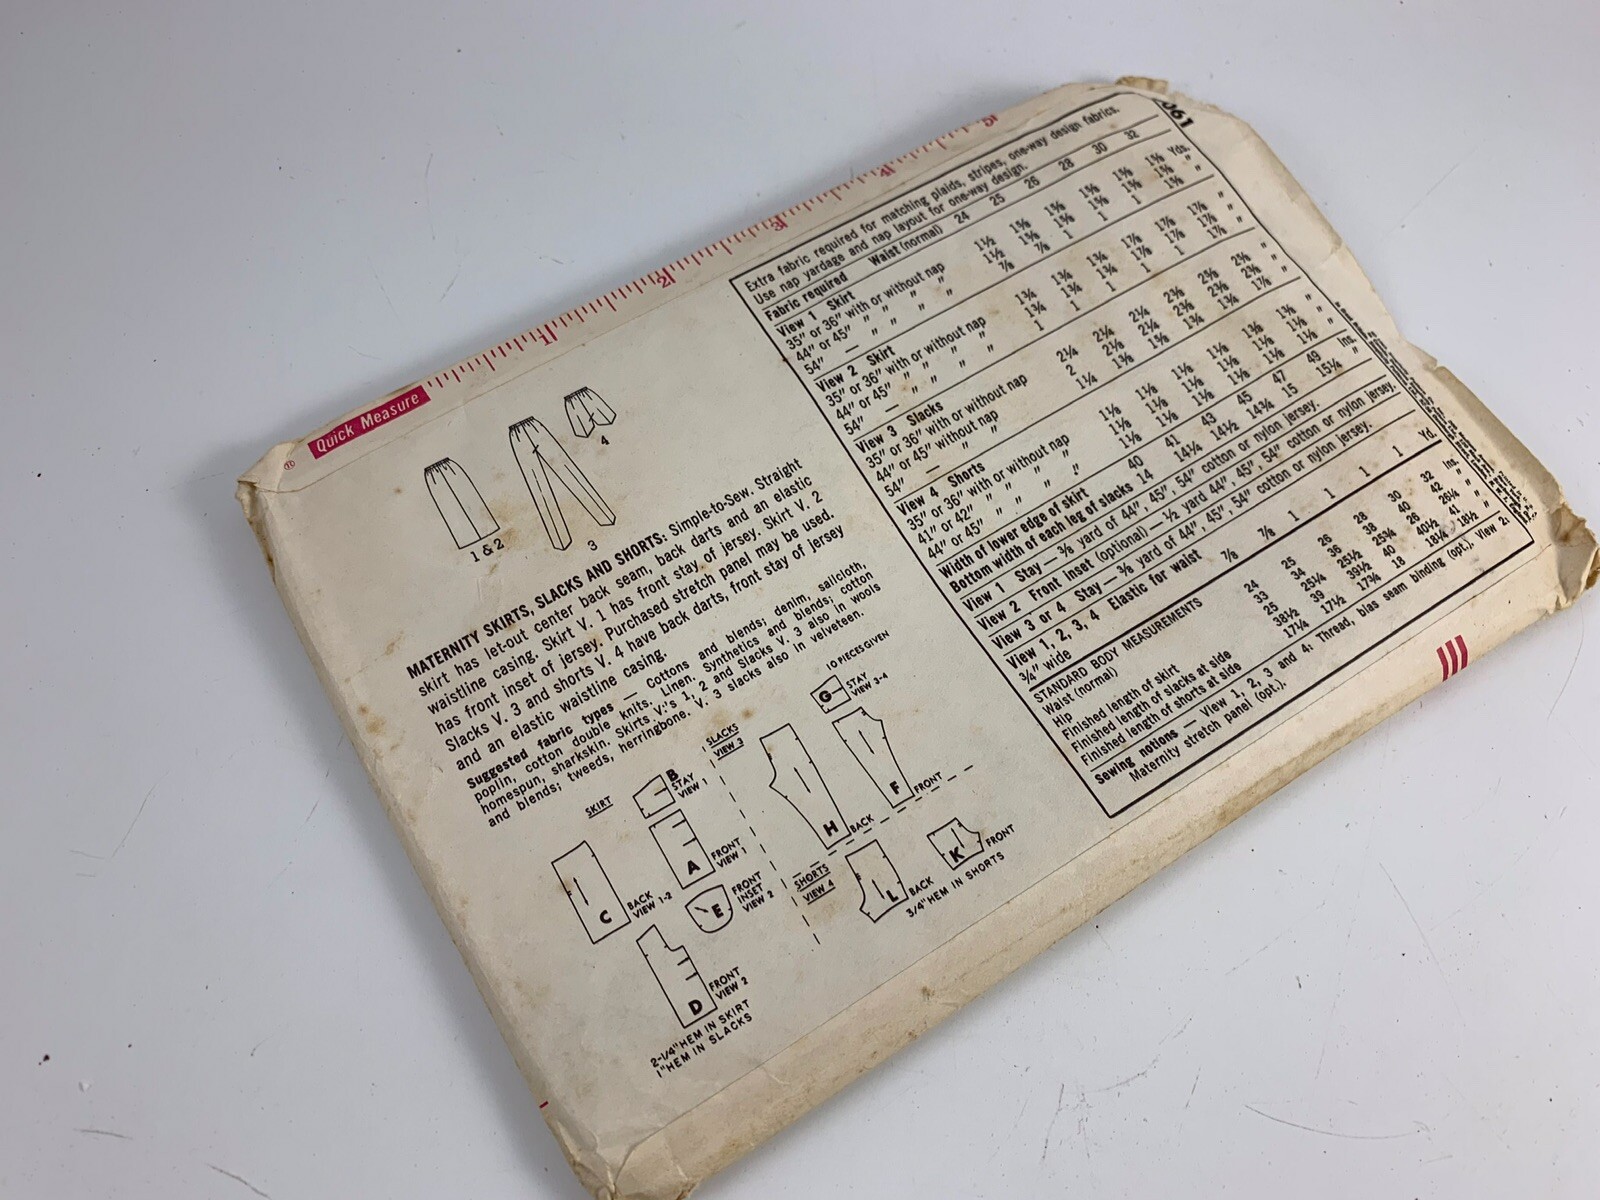 Quick Measure
1
2
3
4
5
061
1 & 2
3
4
MATERNITY SKIRTS, SLACKS AND SHORTS: Simple-to-Sew. Straight
skirt has let-out center back seam, back darts and an elastic
waistline casing. Skirt V. 1 has front stay of jersey. Skirt V. 2
has front inset of jersey. Purchased stretch panel may be used.
Slacks V. 3 and shorts V. 4 have back darts, front stay of jersey
and an elastic waistline casing.
Suggested fabric types — Cottons and blends; denim, sailcloth,
poplin, cotton double knits. Linen. Synthetics and blends; cotton
homespun, sharkskin. Skirts V.'s 1, 2 and Slacks V. 3 also in wools
and blends; tweeds, herringbone. V. 3 slacks also in velveteen.
10 PIECES GIVEN
SKIRT
B
STAY
VIEW 1
A
FRONT
VIEW 1
C
BACK
VIEW 1-2
E
FRONT
INSET
VIEW 2
D
FRONT
VIEW 2
2-1/4" HEM IN SKIRT
1" HEM IN SLACKS
SLACKS
VIEW 3
G
STAY
VIEW 3-4
H
BACK
F
FRONT
SHORTS
VIEW 4
L
BACK
K
FRONT
3/4" HEM IN SHORTS
Extra fabric required for matching plaids, stripes, one-way design fabrics.
Use nap yardage and nap layout for one-way design.
Fabric required Waist (normal) 24 25 26 28 30 32
View 1 Skirt
35" or 36" with or without nap 1½ 1⅝ 1⅝ 1⅝ 1⅝ 1⅝ Yds.
44" or 45" " " " " 1½ 1⅝ 1⅝ 1⅝ 1⅝ 1⅝ "
54" — " " " " ⅞ ⅞ 1 1 1 1⅝ "
View 2 Skirt
35" or 36" with or without nap 1¾ 1¾ 1¾ 1⅞ 1⅞ 1⅞ "
44" or 45" " " " " 1¾ 1¾ 1¾ 1⅞ 1⅞ 1⅞ "
54" — " " " " 1 1 1 1 1 1⅞ "
View 3 Slacks
35" or 36" with or without nap 2¼ 2¼ 2¼ 2⅜ 2⅝ "
44" or 45" without nap 2
54" — " " 1¼
View 4 Shorts
35" or 36" with or without nap
41" or 42" " " " "
44" or 45" " " " "
Width of lower edge of skirt 40 41 43 45 47 49 Ins.
Bottom width of each leg of slacks 14 14¼ 14½ 14¾ 15 15¼ "
View 1 Stay — ⅜ yard of 44", 45", 54" cotton or nylon jersey.
View 2 Front inset (optional) — ½ yard 44", 45", 54" cotton or nylon jersey.
View 3 or 4 Stay — ⅜ yard of 44", 45", 54" cotton or nylon jersey.
View 1, 2, 3, 4 Elastic for waist
¾" wide ⅞ ⅞ 1 1 1 1 Yd.
STANDARD BODY MEASUREMENTS
Waist (normal) 24 25 26 28 30 32 Ins.
Hip 33 34 36 38 40 42 "
Finished length of skirt 25 25¼ 25½ 25¾ 26 26¼ "
Finished length of slacks at side 38½ 39 39½ 40 40½ 41 "
Finished length of shorts at side 17¼ 17½ 17¾ 18 18¼ 18½ "
Sewing notions — View 1, 2, 3 and 4: Thread, bias seam binding (opt.). View 2:
Maternity stretch panel (opt.).